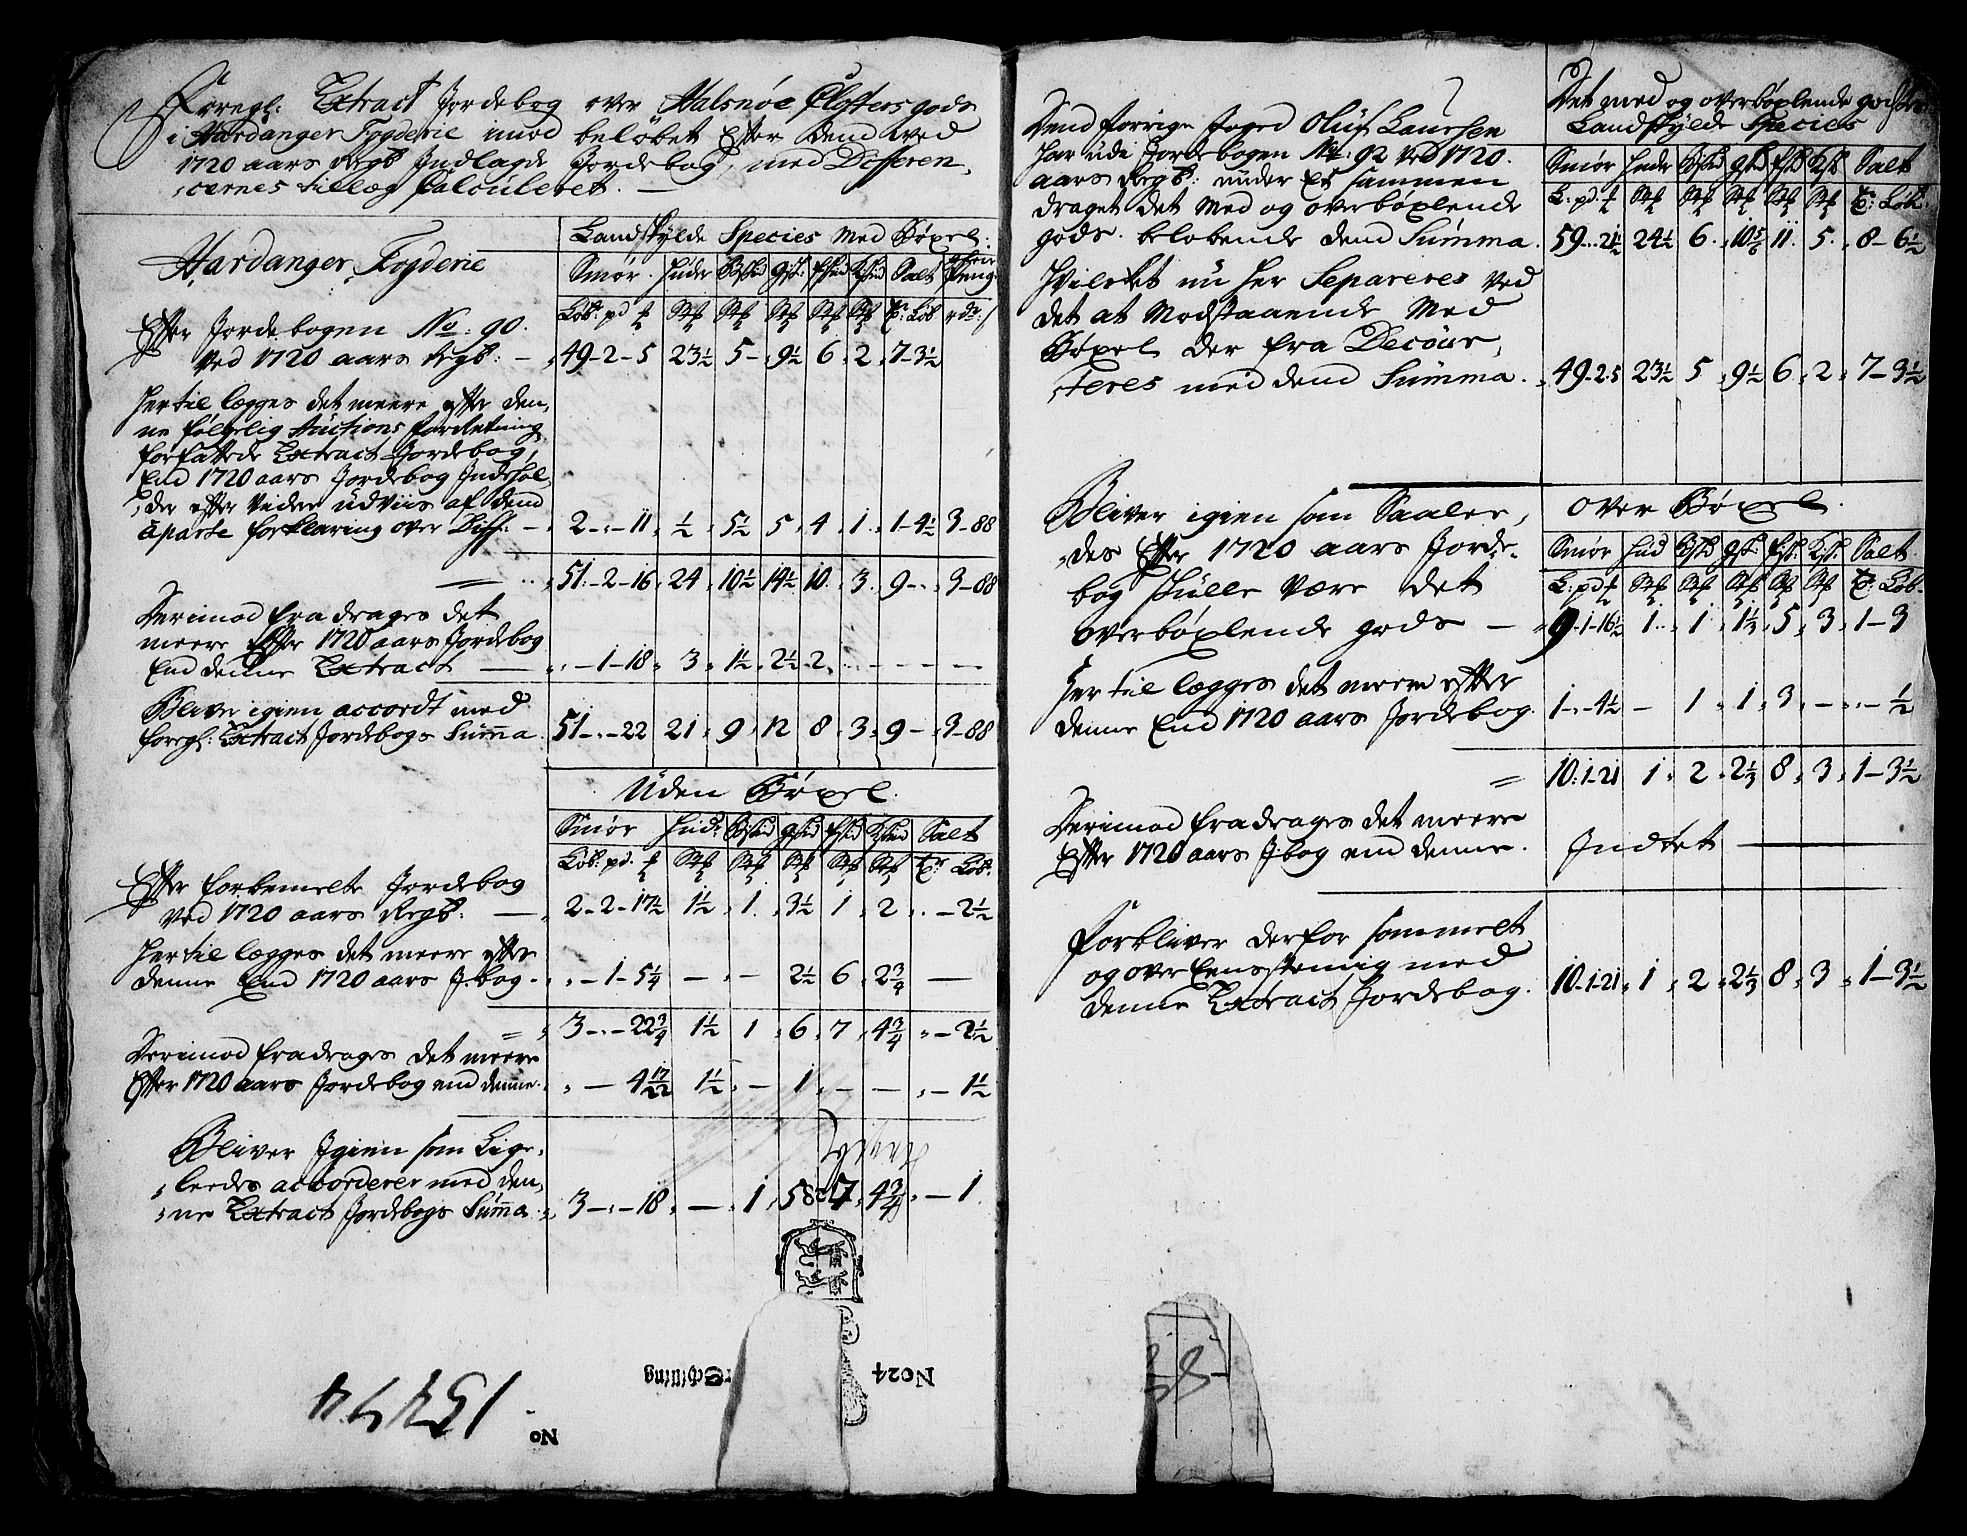 Foregl: Extract Jordebog over Halsnøe Closters gods
i Hardanger Fogderie imod beløbet Efter dend ved
1720 aars Regsk Indlagde Jordebog, med Differen,
,cernes tillæg Calculeret. —
Hardanger Fogderie
Landskylde Species Med Bøxel.
Smør. Huder Salt
Løb. pd
Efter Jordebogen No. 90.
ved 1720 aars Regsk: — 49-2-5 23½ 5 - 9½ 6 2 7-3½
Her til lægges det meere efter den,
ne følgelig Auctions forretning
forfattede Extract Jordebog,
End 1720 aars Jordebog Indehol,
,der efter videre udviis af dend
aparte forklaring over Diff: — 2-.-11 ½ 5½ 5 4 1 1-4½ 3-88
51.-2-16 24 10½ 14½ 10. 3 9-. 3-88
Derimod fradrages det
meere Efter 1720 aars Jordebog
End denne Extract — .-1-18 3 1½ 2½ 2 . - - -
Bliver igien accordt med
foregl: Extract Jordebogs Summa. 51-.-22 21 9 12 8 3 9- 3-88
Uden Bøxel.
Smør Hud: Salt
Løb: pd. Løb.
Efter forbemelte Jordebog
ved 1720 aars Regsk: — 2-2-17½ 1½ 1. 3½ 1 2 .-2½
Her til lægges det meere efter
denne End 1720 aars J:bog - .-1-5¼ — — 2½ 6 2¾ —
3-.-22¾ 1½ 1 6 7 4¾ .-2½
Derimod fradrages det meere
Efter 1720 aars Jordebog end denne. . — 4 17/22 1½ - 1. - — .-1½
Bliver Igien som Lige,
,leedes accorderer med den,
,ne Extract Jordebogs Summa. 3-.-18 — 1 5 7 4¾ .-1.
No24
Schilling
No
Dend forrige foged Oluf Laursen
har udi Jordebogen No: 92 ved 1720.
aars Regsk: under Et sammen
draget det Med og overbøxlende
gods. beløbende dend Summa. 59.-.21½ 24½ 6. 10⅚ 11. 5. 8-6½
Det med og overbøxlende godses
Landskylde Species
Smør Huder Salt
L: pd. Løb.
Hvilcket nu her Separeres ved
det at Modstaaende Med
Bøxel der fra Decour,
,teres med dend Summa. 49-2-5 23½ 5 9½ 6 2 7-3½
Over Bøxel.
Smør Hud Salt
L: pd Løb.
Bliver igien som Saale,
,des Efter 1720 aars Jorde,
bog skulle være det
overbøxlende gods — 9-1-16½ 1.. 1 1⅓ 5 3 1-3
Her til lægges det meere efter
denne End 1720 aars Jordebog. 1-.-4½ — 1 1 3 — .-½
10.-1-21 1 2 2⅓ 8 3 1-3½
Derimod fradrages det meere
Efter 1720 aars J:bog end denne. Indtet —
Forbliver derfor sammelt
og over Eensstemig med
denne Extract Jordebog. 10-1-21 1 2 2⅓ 8 3 1-3½